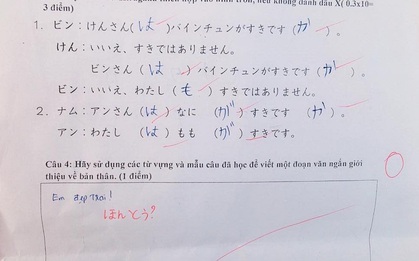 thiệu hợp vào ô hình tròn, nếu không đánh dấu X( 0.3x10=
3 điểm)
1. ビン：けんさん(は)バインチュンがすきです(か)。
けん：いいえ、すきではありません。
ビンさん(は)バインチュンがすきです(か)。
ビン：いいえ、わたし(も)すきではありません。
2. ナム：アンさん(は)なに(が)すきです(か)。
アン：わたし(は)もも(が)すきです。
Câu 4: Hãy sử dụng các từ vựng và mẫu câu đã học để viết một đoạn văn ngắn giới
thiệu về bản thân. (1 điểm)
0
Em đẹp trai!
ほんとう?